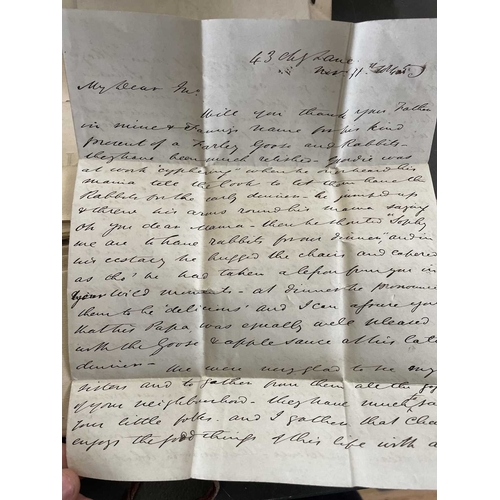 43 Chy Lane
Nov 11th
My Dear
Will you thank your Father
in mine & Fanny's name for his kind
present of a Farley Goose and Rabbits -
they have been much relished - was
at work "cyphering" when he heard his
mama tell the cook to let them have the
Rabbits for the early dinner - he jumped up
& threw his arms round his mama saying
Oh you dear Mama - then he shouted "Sophy
we are to have rabbits for our dinner", and in
his ecstasy he hugged the chairs and capered
as tho' he had taken a lesson from you in
your wild moments - at dinner he pronounced
them to be 'delicious' and I can assure you
that his Papa was equally well pleased
with the Goose & apple sauce at his late
dinner - We were very glad to see my
sisters and to gather from them all the
of your neighbourhood - they have much
your little folks - and I gather that
enjoys the good things of this life with a